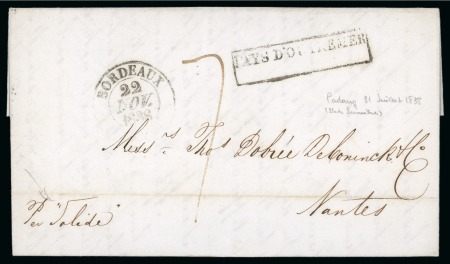 PAYS D'OUTREMER
BORDEAUX
22
NOV.
Padang 31 Juillet 1838
Mess.rs Thos Dobrée Deconinck & Co
Nantes
Per "Solide"